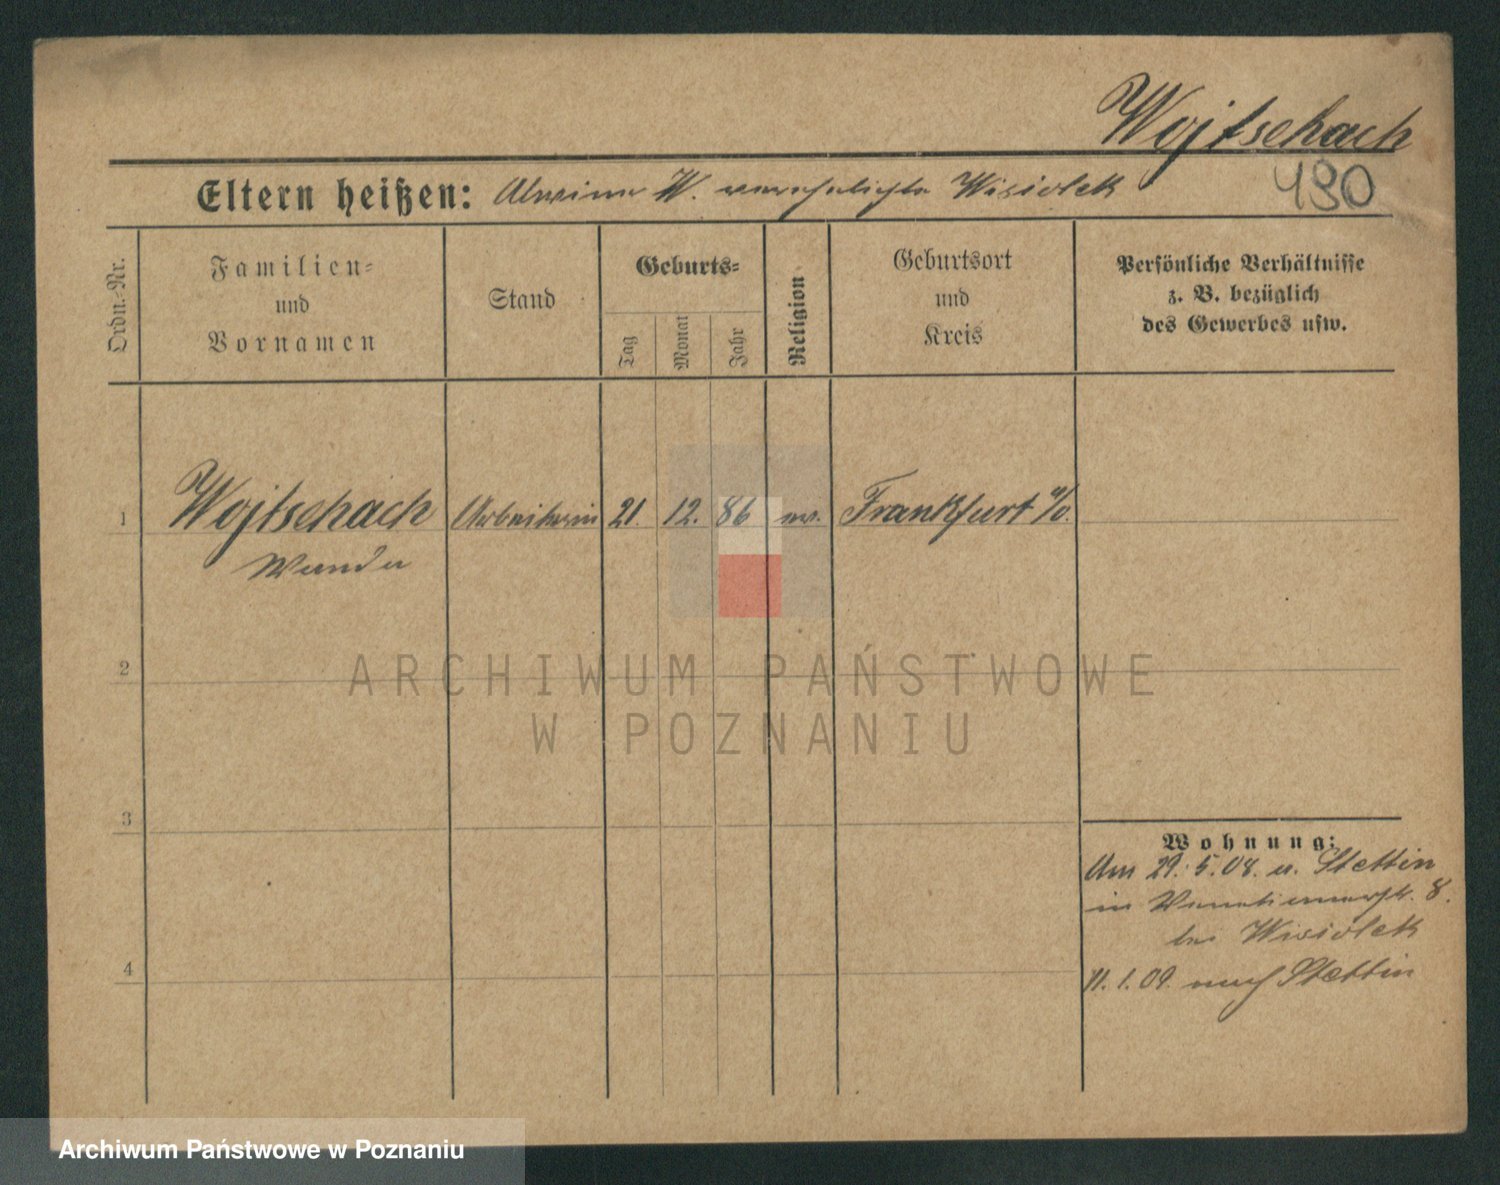 Wojtschach
Eltern heißen: Alwine W. verehelichte Wisiolek 490
Ordn.-Nr.
Familien-
und
Vornamen
Stand
Geburts-
Tag
Monat
Jahr
Religion
Geburtsort
und
Kreis
Persönliche Verhältnisse
z. B. bezüglich
des Gewerbes usw.
1 Wojtschach Arbeiterin 21. 12. 86 ev. Frankfurt a/O.
Wanda
2
3
4
Wohnung:
Am 29. 5. 08. v. Stettin
in 8.
bei Wisiolek
11. 1. 09. nach Stettin
ARCHIWUM PAŃSTWOWE
W POZNANIU
Archiwum Państwowe w Poznaniu